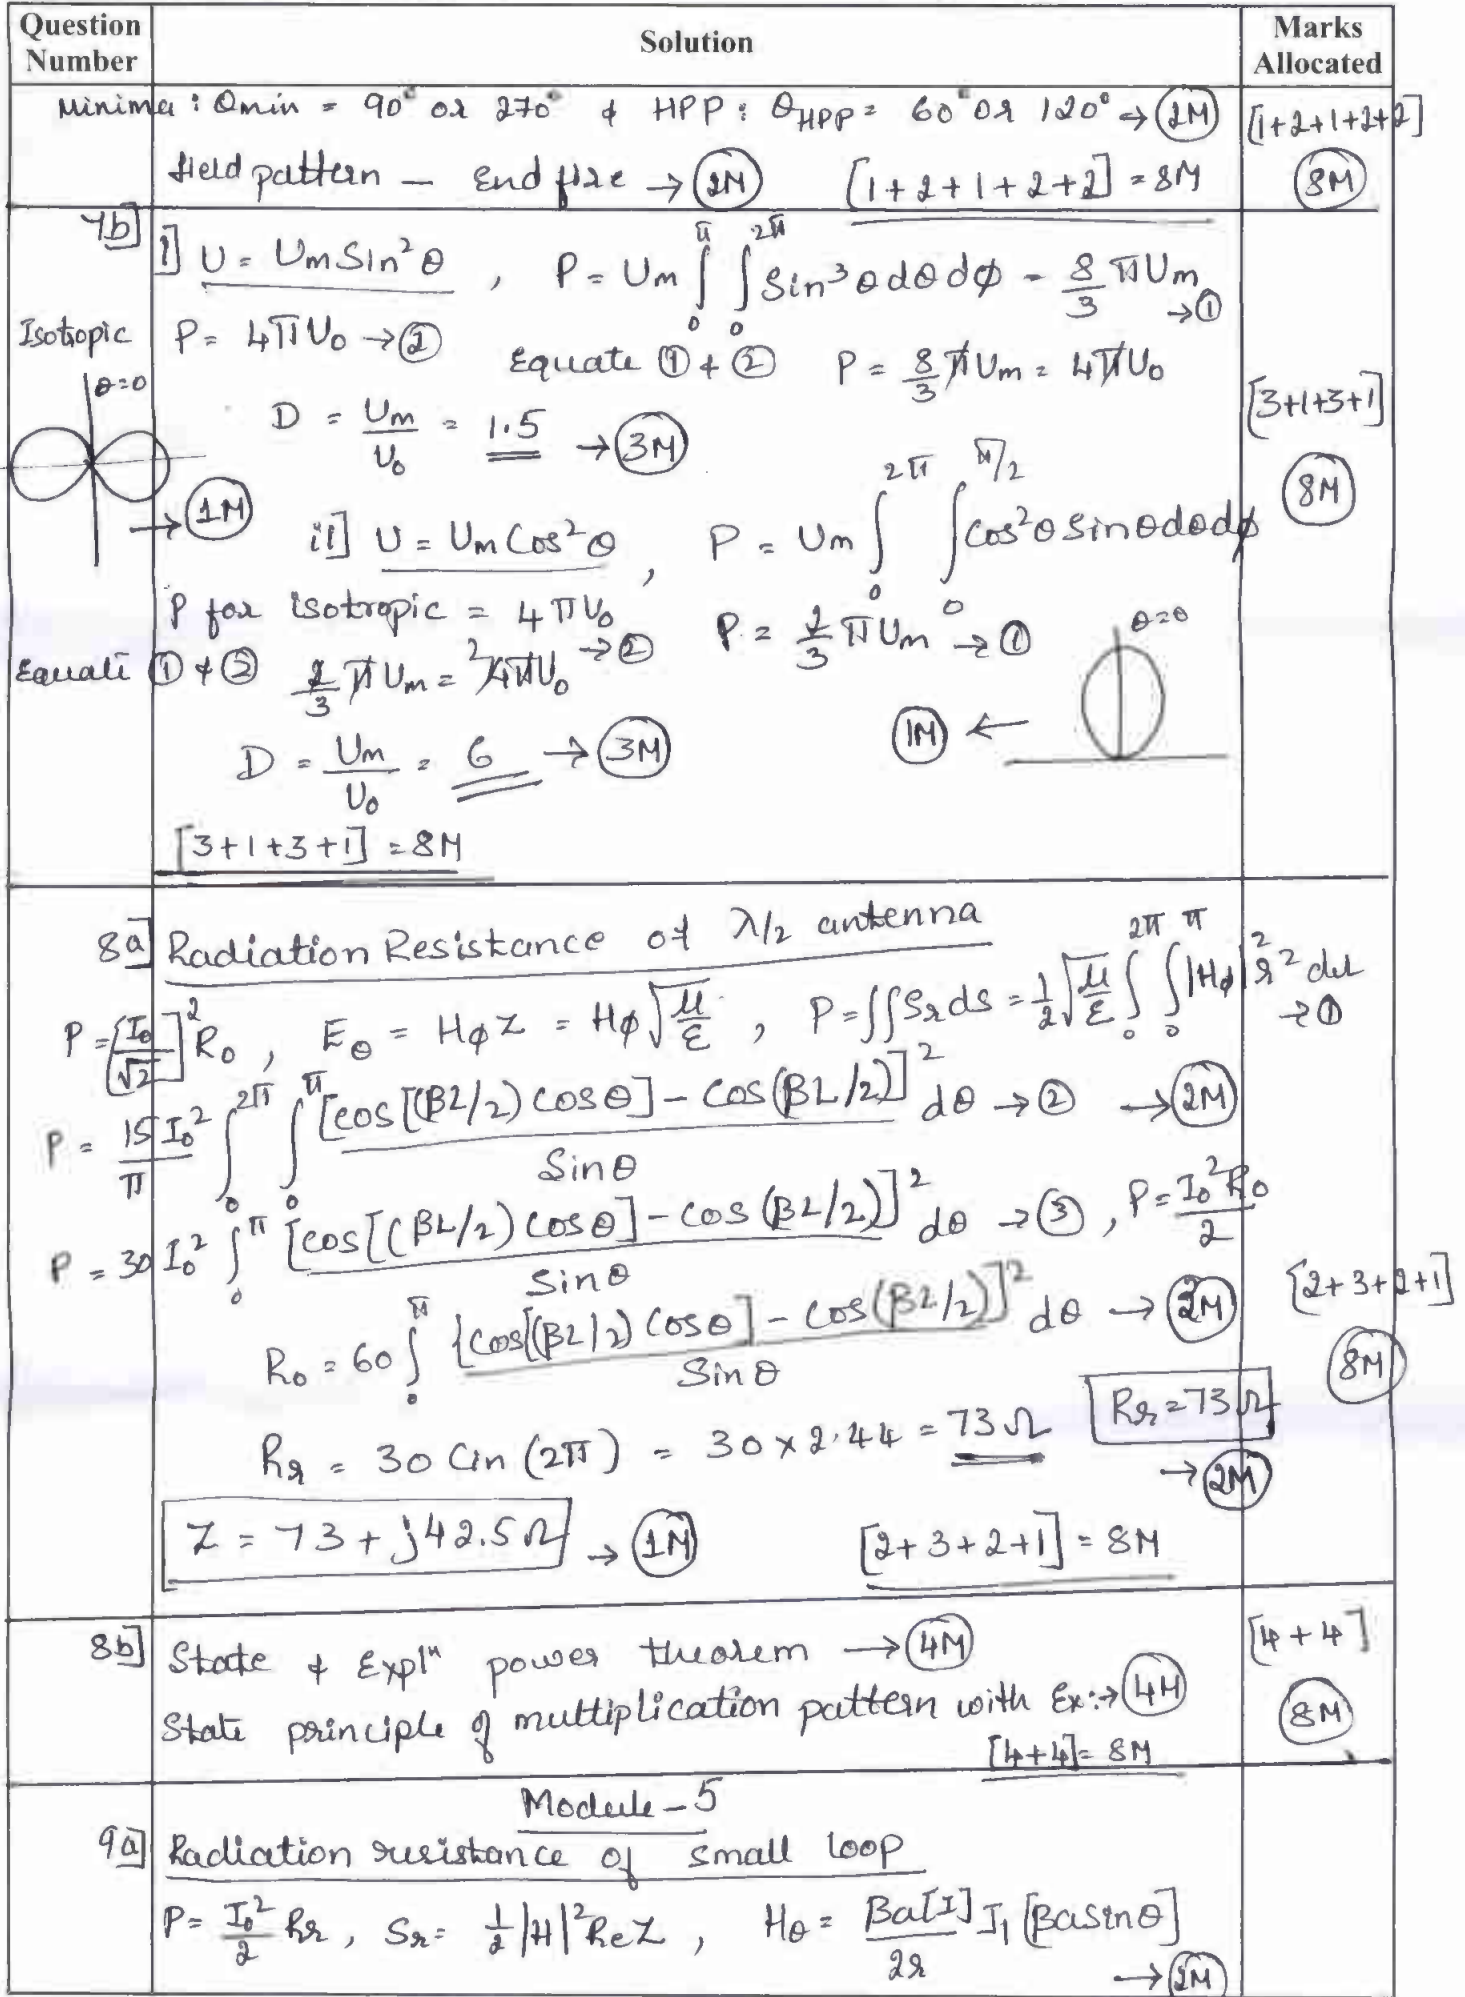 Question Number | Solution | Marks Allocated
Minima : θmin = 90° or 270° & HPP : θHPP = 60° or 120° → (2M) [1+2+1+2+2]
field pattern – End fire → (2M) [1+2+1+2+2] = 8M (8M)
7b] i] U = Um Sin²θ , P = Um ∫₀^π ∫₀^2π Sin³θ dθ dφ = 8/3 πUm → ①
Isotropic P = 4πU₀ → ② Equate ① & ② P = 8/3 πUm = 4πU₀
θ=0
D = Um/U₀ = 1.5 → (3M) [3+1+3+1]
(8M)
→ (1M) ii] U = Um Cos²θ , P = Um ∫₀^2π ∫₀^π/2 Cos²θ Sinθ dθ dφ
P for isotropic = 4πU₀ → ② P = 2/3 πUm → ① θ=0
Equate ① & ② 2/3 πUm = ²4πU₀
D = Um/U₀ = 6 → (3M) (1M) ←
[3+1+3+1] = 8M
8a] Radiation Resistance of λ/2 antenna
P = [I₀/√2]² R₀ , Eθ = Hφ Z = Hφ √(μ/ε) , P = ∫∫ Sr ds = 1/2 √(μ/ε) ∫₀^2π ∫₀^π |Hφ|² r² → ①
P = 15 I₀²/π ∫₀^2π ∫₀^π [cos[(βL/2) cosθ] – cos(βL/2)]²/Sinθ dθ → ② → (2M)
P = 30 I₀² ∫₀^π [cos[(βL/2) cosθ] – cos(βL/2)]²/Sinθ dθ → ③ , P = I₀²R₀/2
R₀ = 60 ∫₀^π {cos[(βL/2) cosθ] – cos(βL/2)]²/Sinθ dθ → [2+3+2+1]
(8M)
Rr = 30 Cin (2π) = 30 × 2.44 = 73 Ω Rr = 73 Ω → (2M)
Z = 73 + j42.5 Ω → (1M) [2+3+2+1] = 8M
8b] State & Explⁿ power theorem → (4M) [4+4]
State principle of multiplication pattern with Ex: → (4M) (8M)
[4+4] = 8M
Module – 5
9a] Radiation resistance of small loop
P = I₀²/2 Rr , Sr = 1/2 |H|² Re Z , Hθ = βa[I]/2r J₁ [βa sinθ]
→ (2M)